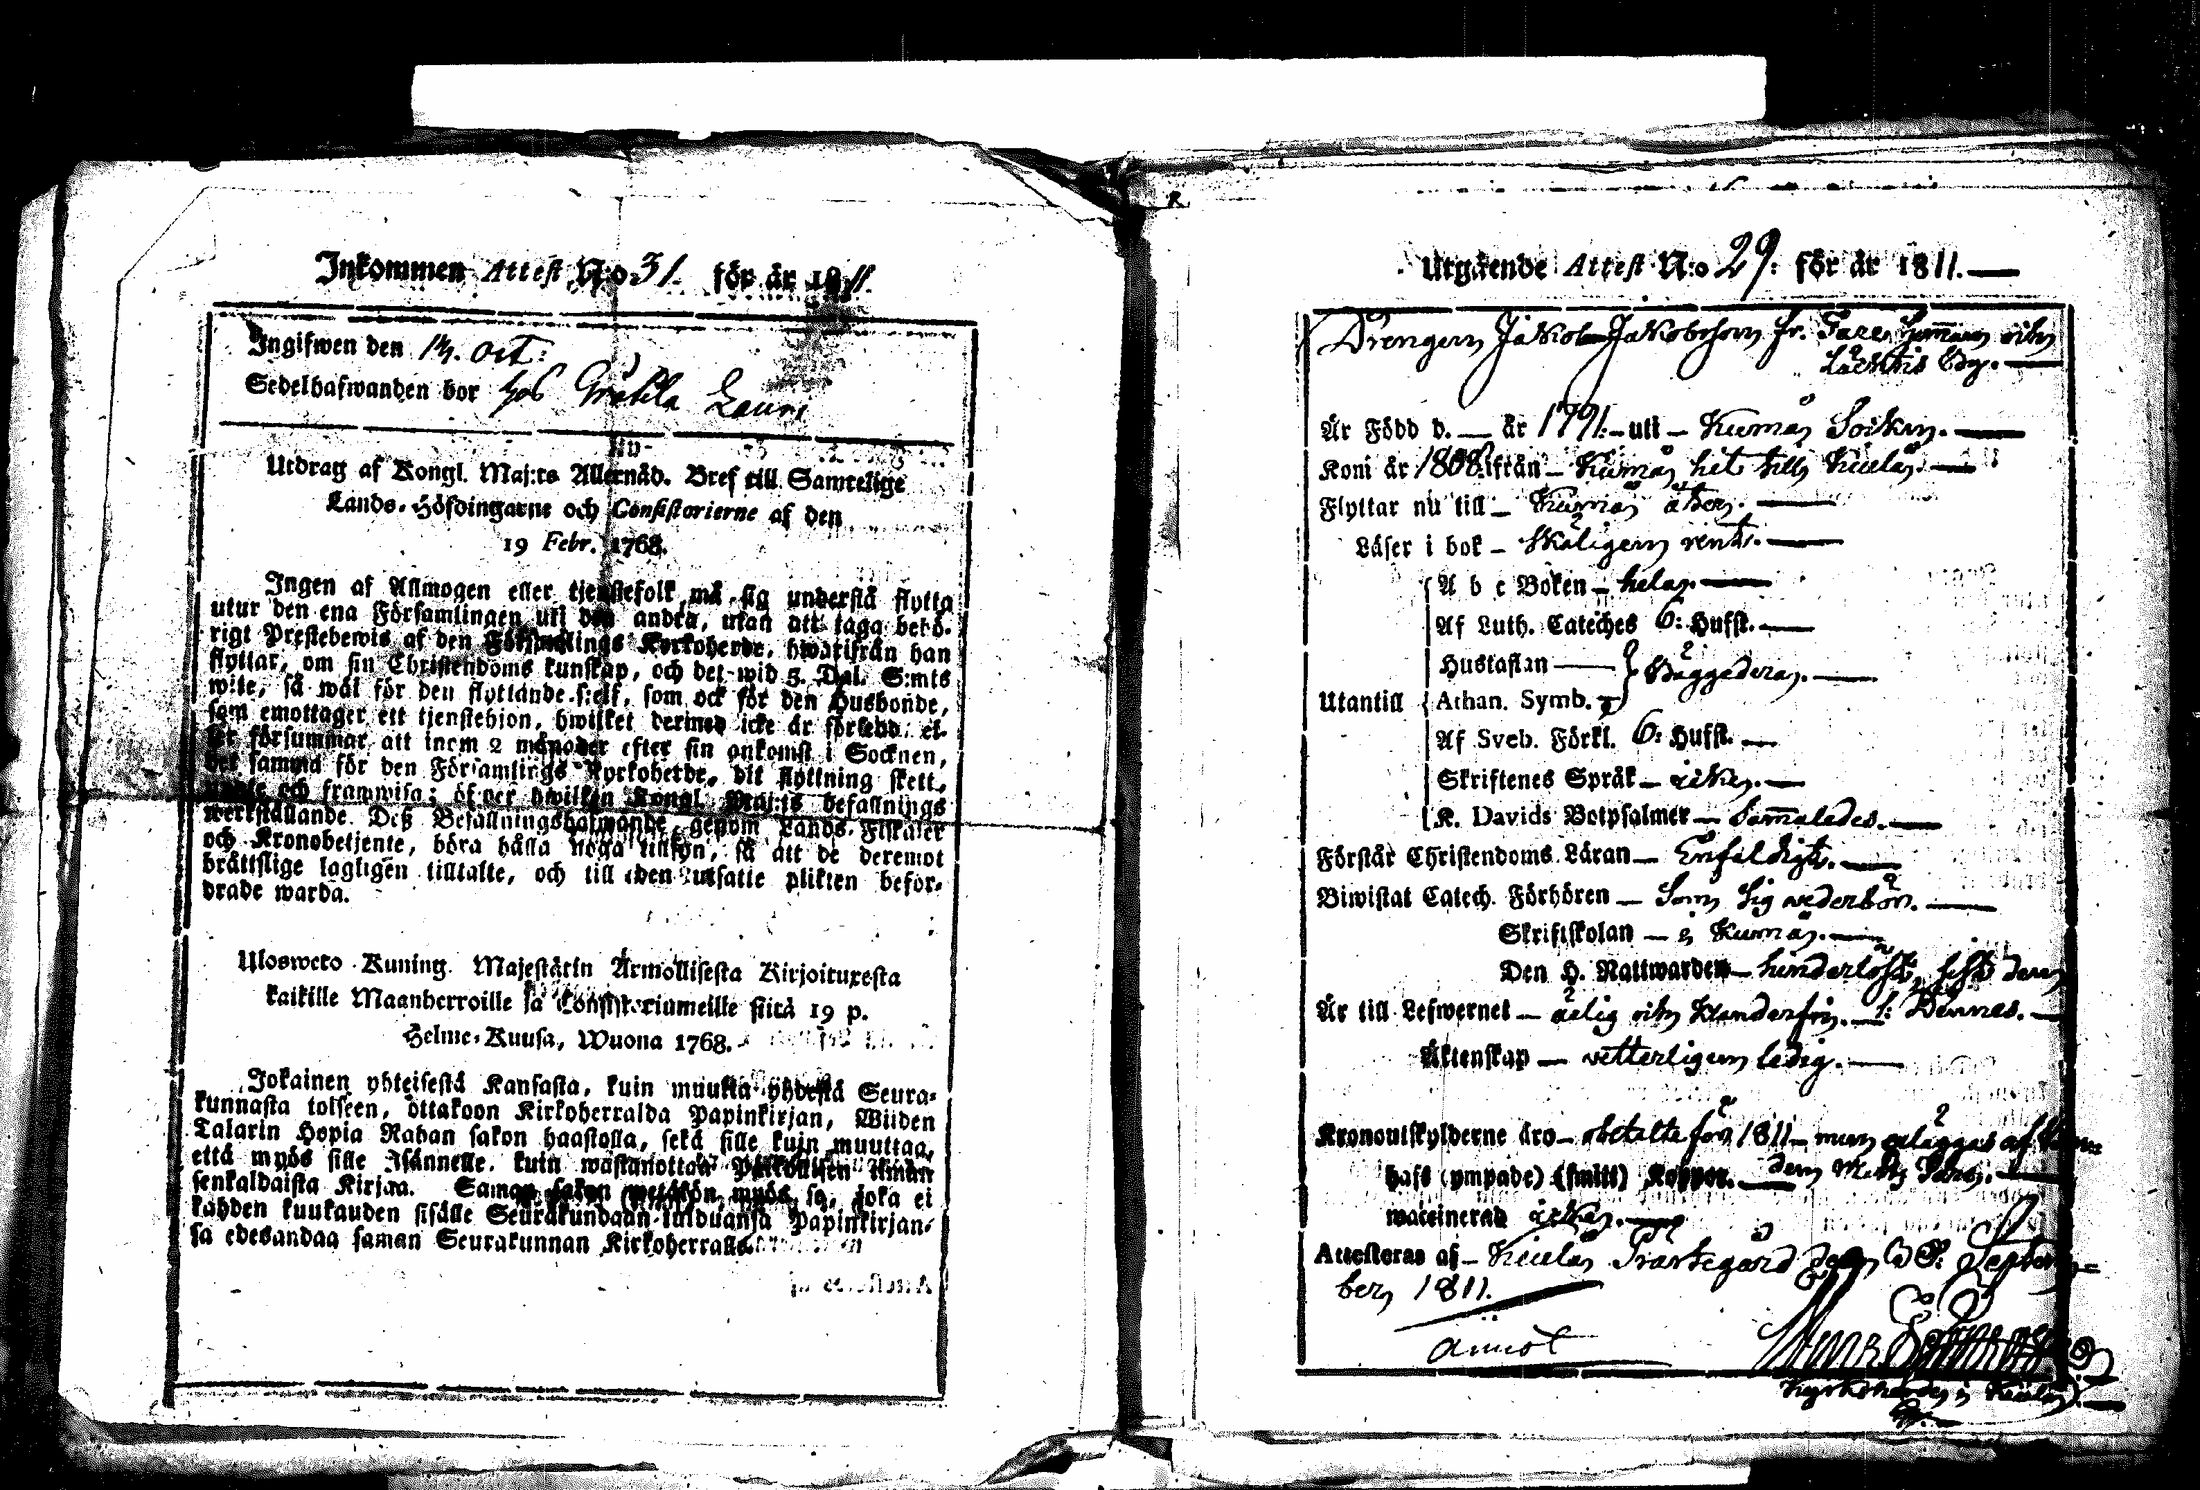 Inkommen Attest N:o 31. för år 1811.
Ingifwen den 14. Oct:
Sedelhafwanden bor hos Lauri
Utdrag af Kongl. Maj:ts Allernåd. Bref till Samtelige
Lands-Höfdingarne och Consistorierne af den
19 Febr. 1768.
Ingen af Allmogen eller tjenstefolk må sig understå flytta
utur den ena Församlingen uti den andra, utan att taga behö-
rigt Prestebewis af den Församlings Kyrkoherde, hwarifrån han
flyttar, om sin Christendoms kunskap, och det wid 5. Dal. S:mts
wite, så wäl för den flyttande sjelf, som ock för den Husbonde,
som emottager ett tjenstehjon, hwilket dermed icke är försedd, el-
ler försummar att inom 2 månader efter sin ankomst i Socknen,
det samma för den Församlings Kyrkoherde, dit flyttning skett,
upte och framwisa; öfwer hwilken Kongl. Maj:ts befallnings
werkställande Deß Befallningshafwande, genom Lands-Fiskaler
och Kronobetjente, böra hålla noga tillsyn, så att de deremot
bråttslige lagligen tilltalte, och till den utsatte plikten befor-
drade warda.
Uloswcto Kuning. Majestätin Armollisesta Kirjoituxesta
kaikille Maanherroille ja Consistoriumeille siitä 19 p.
Helme-Kuusa, Wuona 1768.
Jokainen yhteisestä Kansasta, kuin muutta yhdestä Seura-
kunnasta toiseen, ottakoon Kirkoherralda Papinkirjan, Wiiden
Talarin Hopia Rahan sakon haastolla, sekä sille kuin muuttaa,
että myös sille Isännelle, kuin wastanottaa Palkollisen ilman
senkaldaista Kirjaa. Saman sakon wetäkön myös se, joka ei
kahden kuukauden sisälle Seurakundaan tulduansa Papinkirjan-
sa edesandaa saman Seurakunnan Kirkoherralle.
Utgående Attest N:o 29: för år 1811.
Drengen Jakob Jakobsson fr. och
by.
Är Född d. — år 1791. uti — Kumo Sokn.
Kom år 1808. ifrån — Kumo hit till Kiulo.
Flyttar nu till — Kumo åter.
Läser i bok — skäligen rent.
A b c Boken — hela.
Af Luth. Cateches 6: Hufst.
Hustaflan
Baggedera.
Utantill Athan. Symb.
Af Sveb. Förkl. 6: Hufst.
Skriftenes Språk
K. Davids Botpsalmer — Sammaledes.
Förstår Christendoms Läran — Enfaldigt.
Biwistat Catech. Förhören — som sig wederbör.
Skriftskolan — i Kumo.
Den H. Nattwarden — hinderlöst, sist den
Är till Lefwernet — ärlig och klanderfri. 1: Dennes.
Äktenskap — vetterligen ledig.
Kronoutskylderne äro — betalte för 1811 — men af
haft (ympade) (smitt) Koppor.
waccinerad
Attesteras af — Kiulo Prästegård den Septem=
ber 1811.
Kyrkoherde i Kiulo.